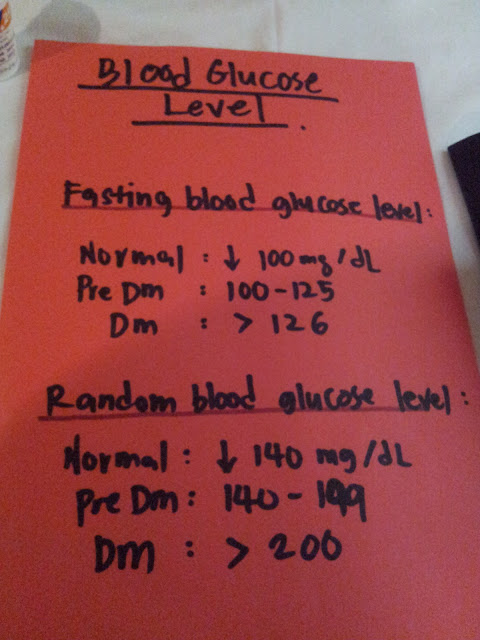 Blood Glucose
Level.
Fasting blood glucose level:
Normal : ↓ 100 mg/dL
Pre Dm : 100-125
Dm : > 126
Random blood glucose level:
Normal : ↓ 140 mg/dL
Pre Dm : 140-199
Dm : > 200